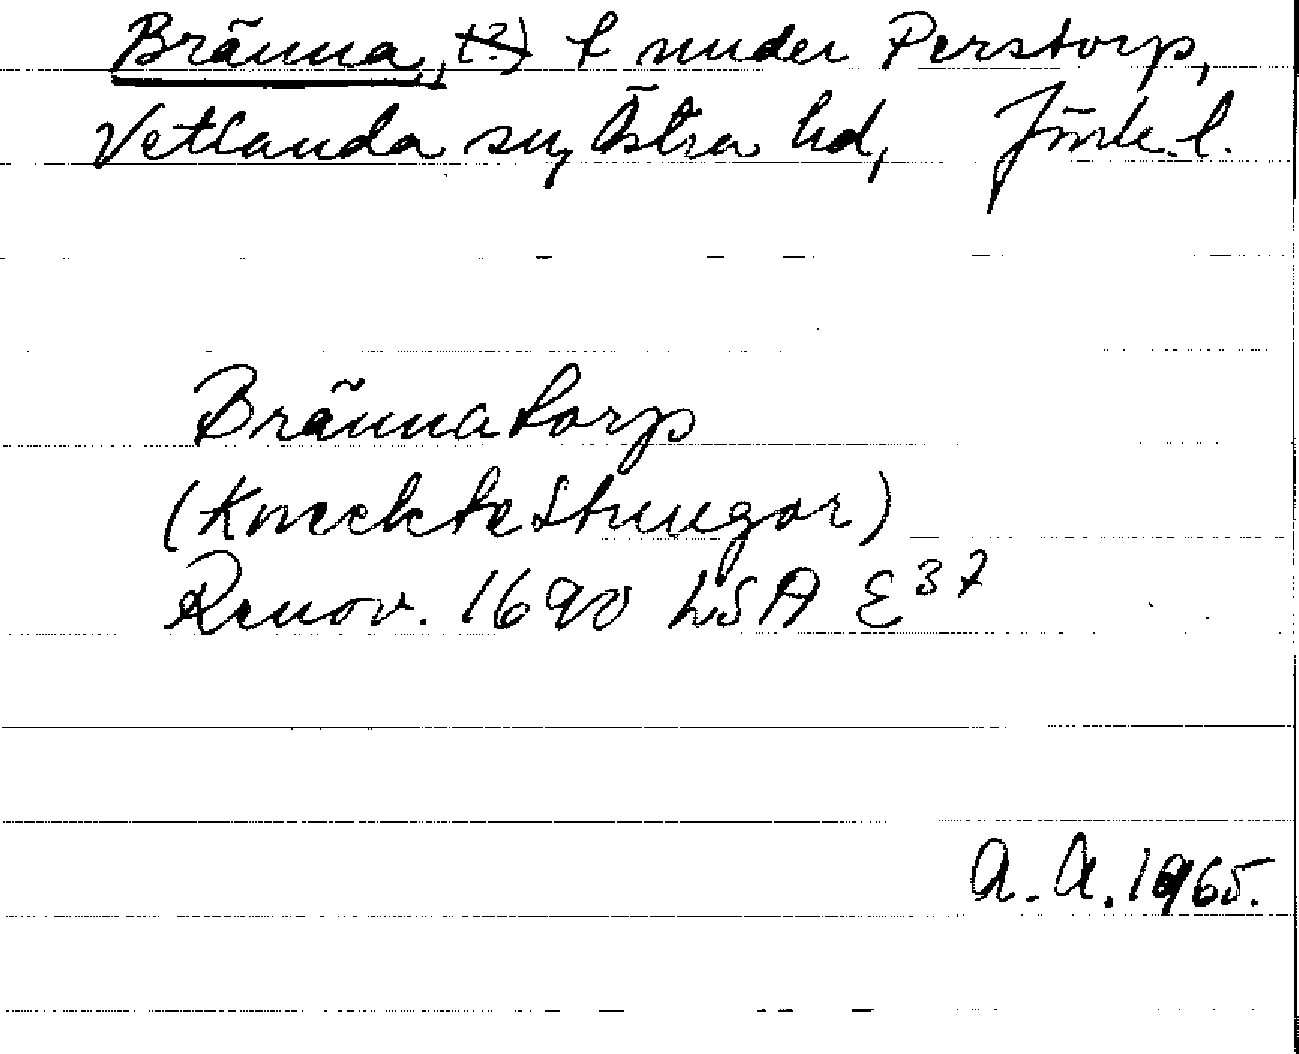 Bränna, (?) t under Perstorp,
Vetlanda sn, Östra hd, Jönk. l.
Brännatorp
(Kneckte Strungar)
Renov. 1690 LSA E 37
A. A. 1965.